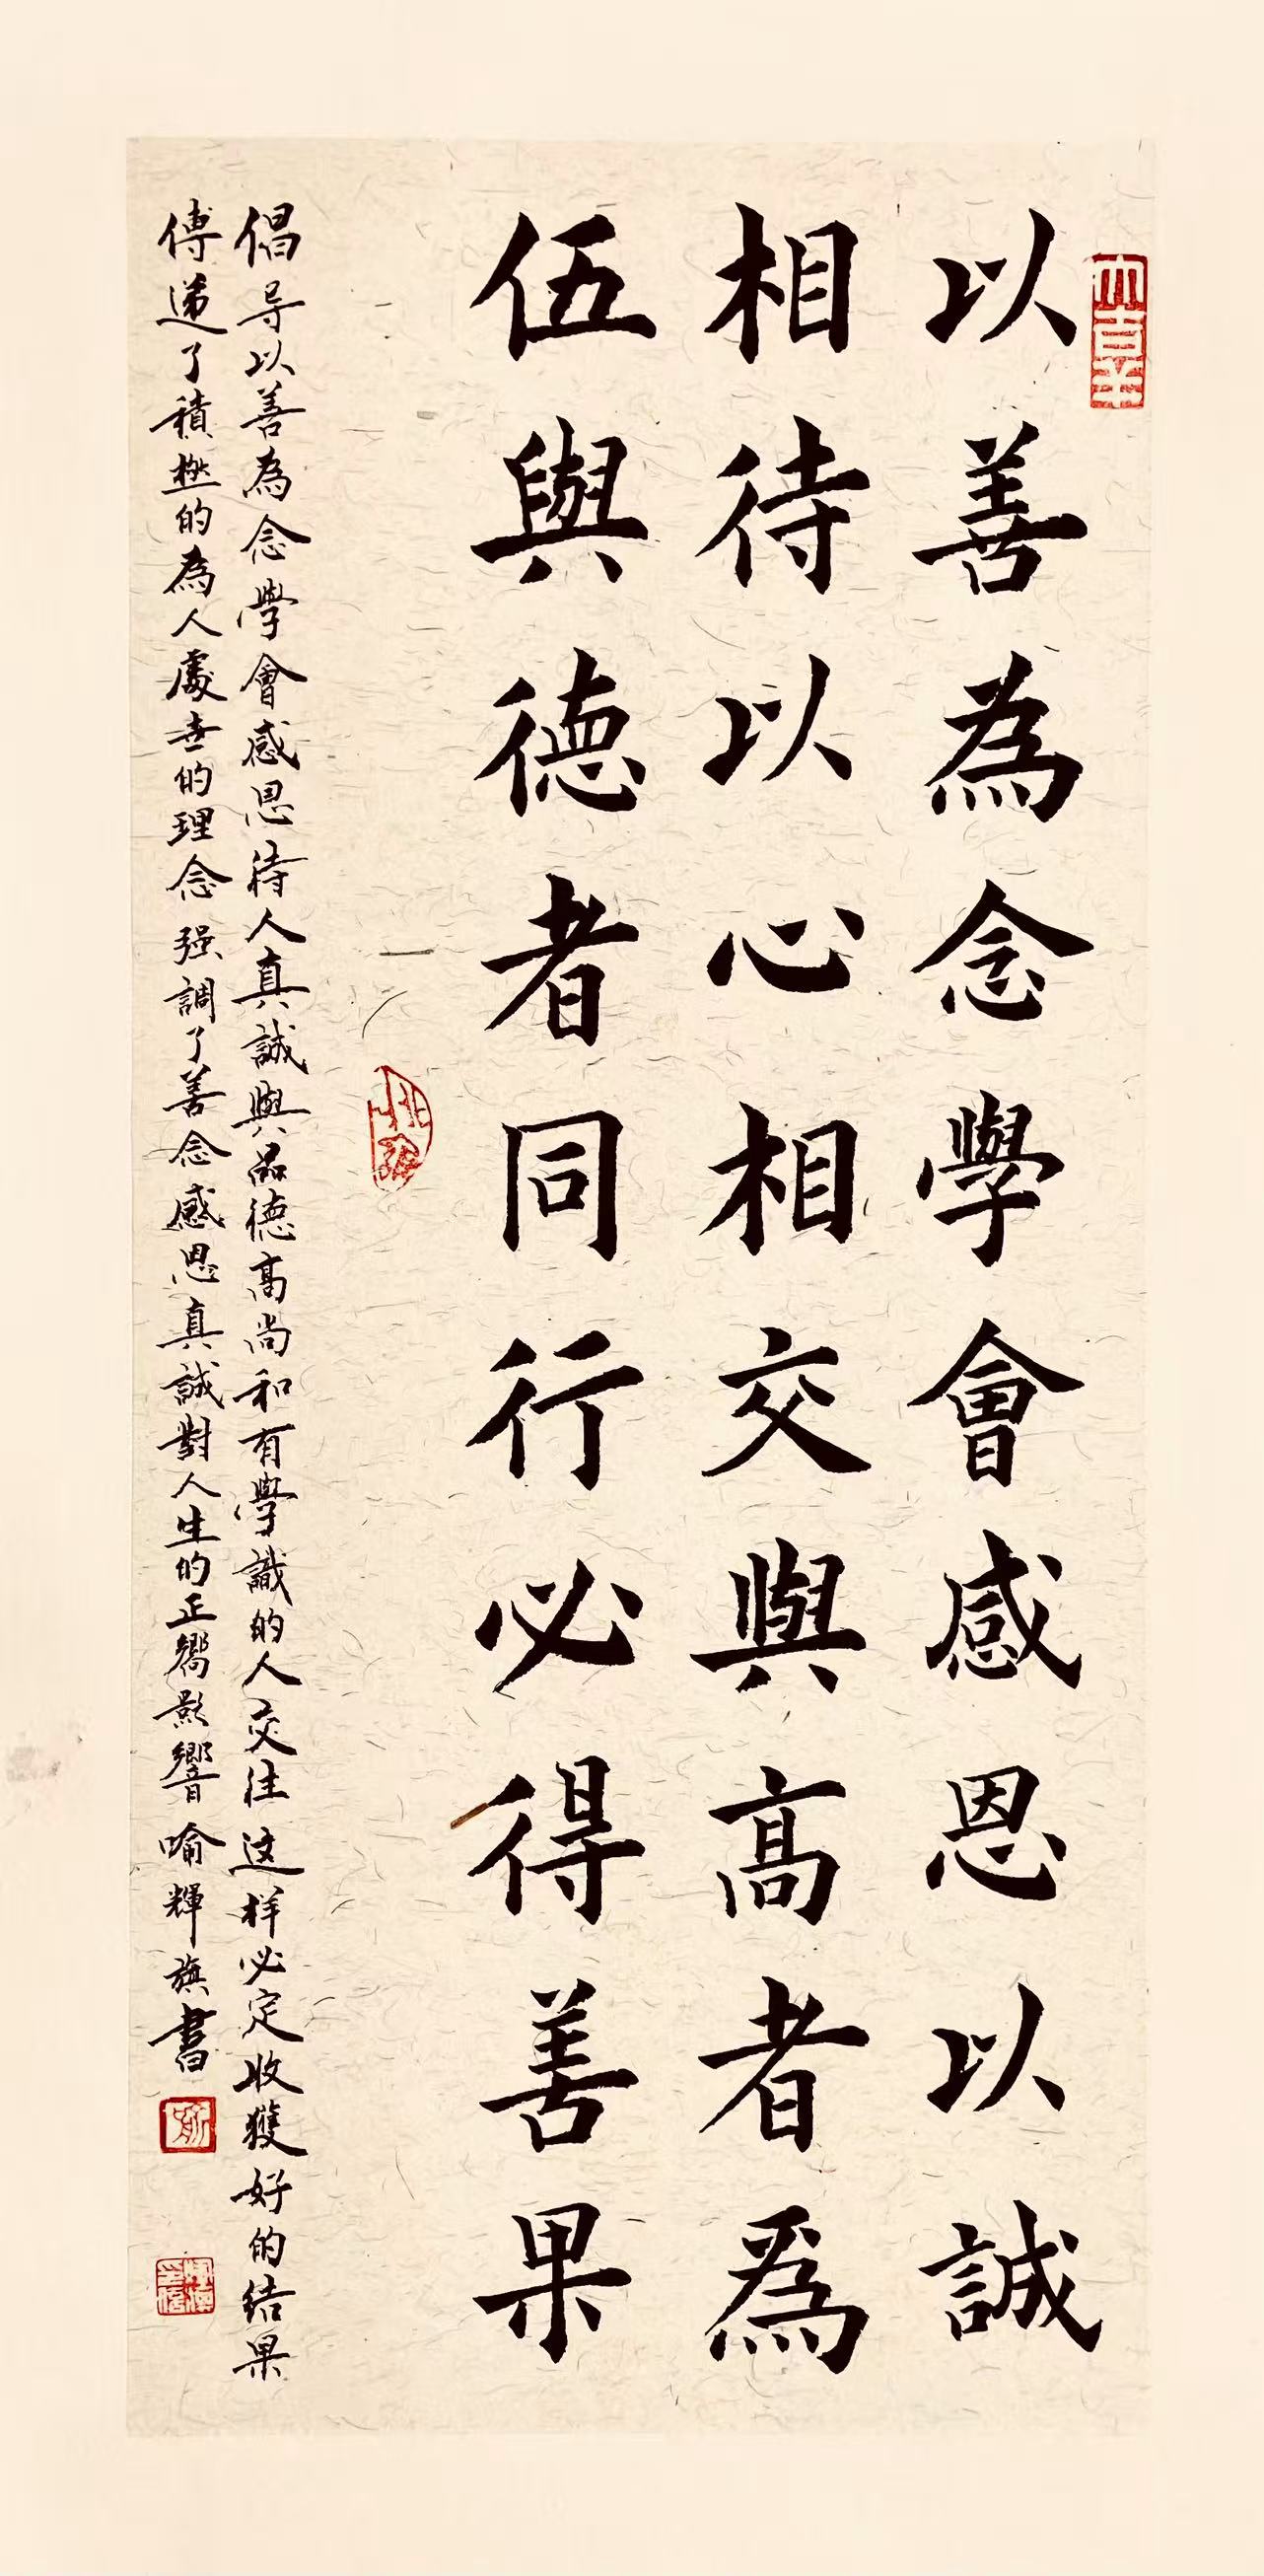 以善為念學會感恩以誠
相待以心相交與高者爲
伍與德者同行必得善果
倡导以善為念學會感恩待人真誠與品德高尚和有學識的人交往这样必定收獲好的结果
傳递了積極的為人處世的理念强調了善念感恩真誠對人生的正嚮影響喻輝旗書
大吉羊
喻